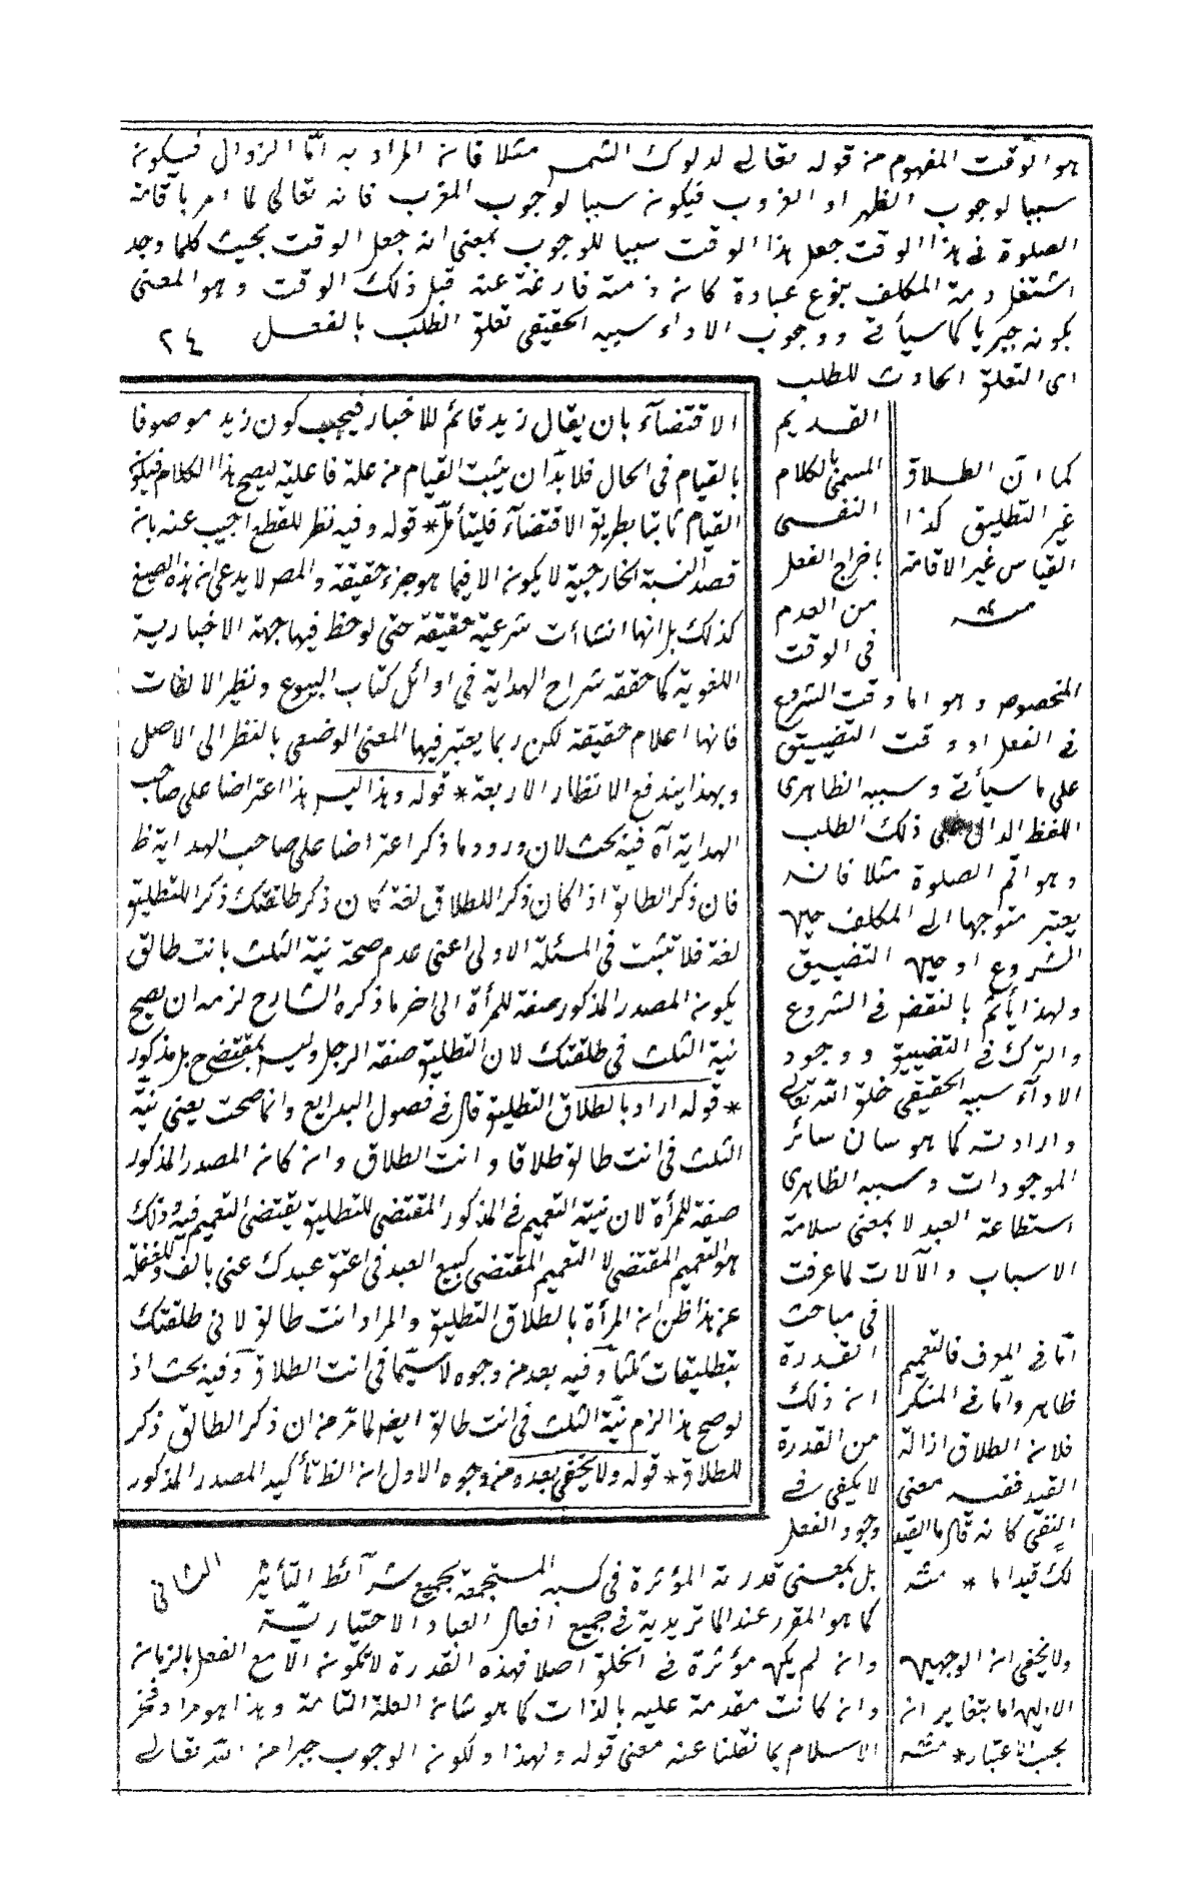 هو الوقت المفهوم من قوله تعالى لدلوك الشمس مثلا فان المراد به امّا الزوال فيكون
سببا لوجوب الظهر او الغروب فيكون سببا لوجوب المغرب فانه تعالى لما امر باقامة
الصلوة فى هذا الوقت جعل هذا الوقت سببا للوجوب بمعنى انه جعل الوقت بحيث كلما وجد
اشتغل ذمة المكلف بنوع عبادة كانت ذمته فارغة عنه قبل ذلك الوقت وهو المعنى
بكونه جبريا كما سيأتى ووجوب الاداء سببه الحقيقى تعلق الطلب بالفعل ٢٤
اى التعلق الحادث للطلب
القديم
المسمى بالكلام
النفسى
باخراج الفعل
من العدم
فى الوقت
المخصوص وهو اما وقت الشروع
فى الفعل او وقت التضييق
على ما سيأتى وسببه الظاهرى
اللفظ الدال على ذلك الطلب
وهو اقم الصلوة مثلا فانه
يعتبر متوجها الى المكلف حين
الشروع او حين التضييق
ولهذا يأثم بالنقض فى الشروع
والترك فى التضييق ووجود
الاداء سببه الحقيقى خلق الله تعالى
وارادته كما هو سان سائر
الموجودات وسببه الظاهرى
استطاعة العبد لا بمعنى سلامة
الاسباب والآلات لما عرفت
فى مباحث
القدرة
ان ذلك
من القدرة
لا يكفى فى
وجود الفعل
بل بمعنى قدرته المؤثرة فى كسبه المستجمعة بجميع شرآئط التأثير
كما هو المقرر عند الماتريدية فى جميع افعال العباد الاختيارية
وان لم يكن مؤثرة فى الخلق اصلا فهذه القدرة لا تكون الا مع الفعل بالزمان
وان كانت مقدمة عليه بالذات كما هو شان العلة التامة وهذا هو مراد فخر
الاسلام بما نقلنا عنه معنى قوله ولهذا ولكون الوجوب جبرا من الله تعالى
كما ان الطلاق
غير التطليق كذا
القياس غير الاقامة
منه
الاقتضآء بان يقال زيد قائم للاخبار فيجب كون زيد موصوفا
بالقيام فى الحال فلا بدّ ان يثبت القيام من علة فاعلية ليصح هذا الكلام فيكون
القيام ثابتا بطريق الاقتضآء فليتأمل * قوله وفيه نظر للقطع اجيب عنه بان
قصد النسبة الخارجية لا يكون الا فيما هو جزء حقيقة والمص لا يدعى ان هذه الصيغ
كذلك بل انها انشاءات شرعية حقيقة حتى لوحظ فيها جهة الاخبارية
اللغوية كما حققه شراح الهداية فى اوائل كتاب البيوع ونظير الالفاظ
فانها اعلام حقيقة لكن ربما يعتبر فيها المعنى الوضعى بالنظر الى الاصل
وبهذا يندفع الانظار الاربعة * قوله وهذا ليس هذا اعتراضا على صاحب
الهداية آه فيه بحث لان ورود ما ذكر اعتراضا على صاحب الهداية ظ
فان ذكر الطالق اذا كان ذكرا للطلاق لغة كان ذكر طلقتك ذكرا للتطليق
لغة فلا تثبت فى المسئلة الاولى اعنى عدم صحة نية الثلث بانت طالق
بكون المصدر المذكور صفة للمرأة الى اخر ما ذكره الشارح لزمه ان يصح
نية الثلث فى طلقتك لان التطليق صفة الرجل وليس بمقتضى ح بل مذكور
* قوله اراد بالطلاق التطليق قال فى فصول البدايع وانما صحت يعنى نيّة
الثلث فى انت طالق طلاقا وانت الطلاق وان كان المصدر المذكور
صفة للمرأة لان نية التعميم فى المذكور المقتضى للتطليق يقتضى التعميم فيه وذلك
هو التعميم المقتضى لا التعميم المقتضى كبيع العبد فى اعتق عبدك عنى بالف وللغفلة
عن هذا ظن ان المرأة بالطلاق التطليق والمراد انت طالق لانى طلقتك
تطليقات ثلثا وفيه بعد من وجوه لا سيّما فى انت الطلاق وفيه بحث اذ
لو صح هذا لزم نيّة الثلث فى انت طالق ايض لما مرّ من ان ذكر الطالق ذكر
للطلاق * قوله ولا يخفى بعده من وجوه الاول ان الظ تأكيد المصدر المذكور
الثانى
امّا فى المعرف فالتعميم
ظاهر وامّا فى المنكر
فلان الطلاق ازالة
القيد ففيه معنى
النفى كانه قال ما القيد
لك قيدا ما * منه
ولا يخفى ان الوجهين
الاولين اما بتغاير ان
بحسب الاعتبار * منه